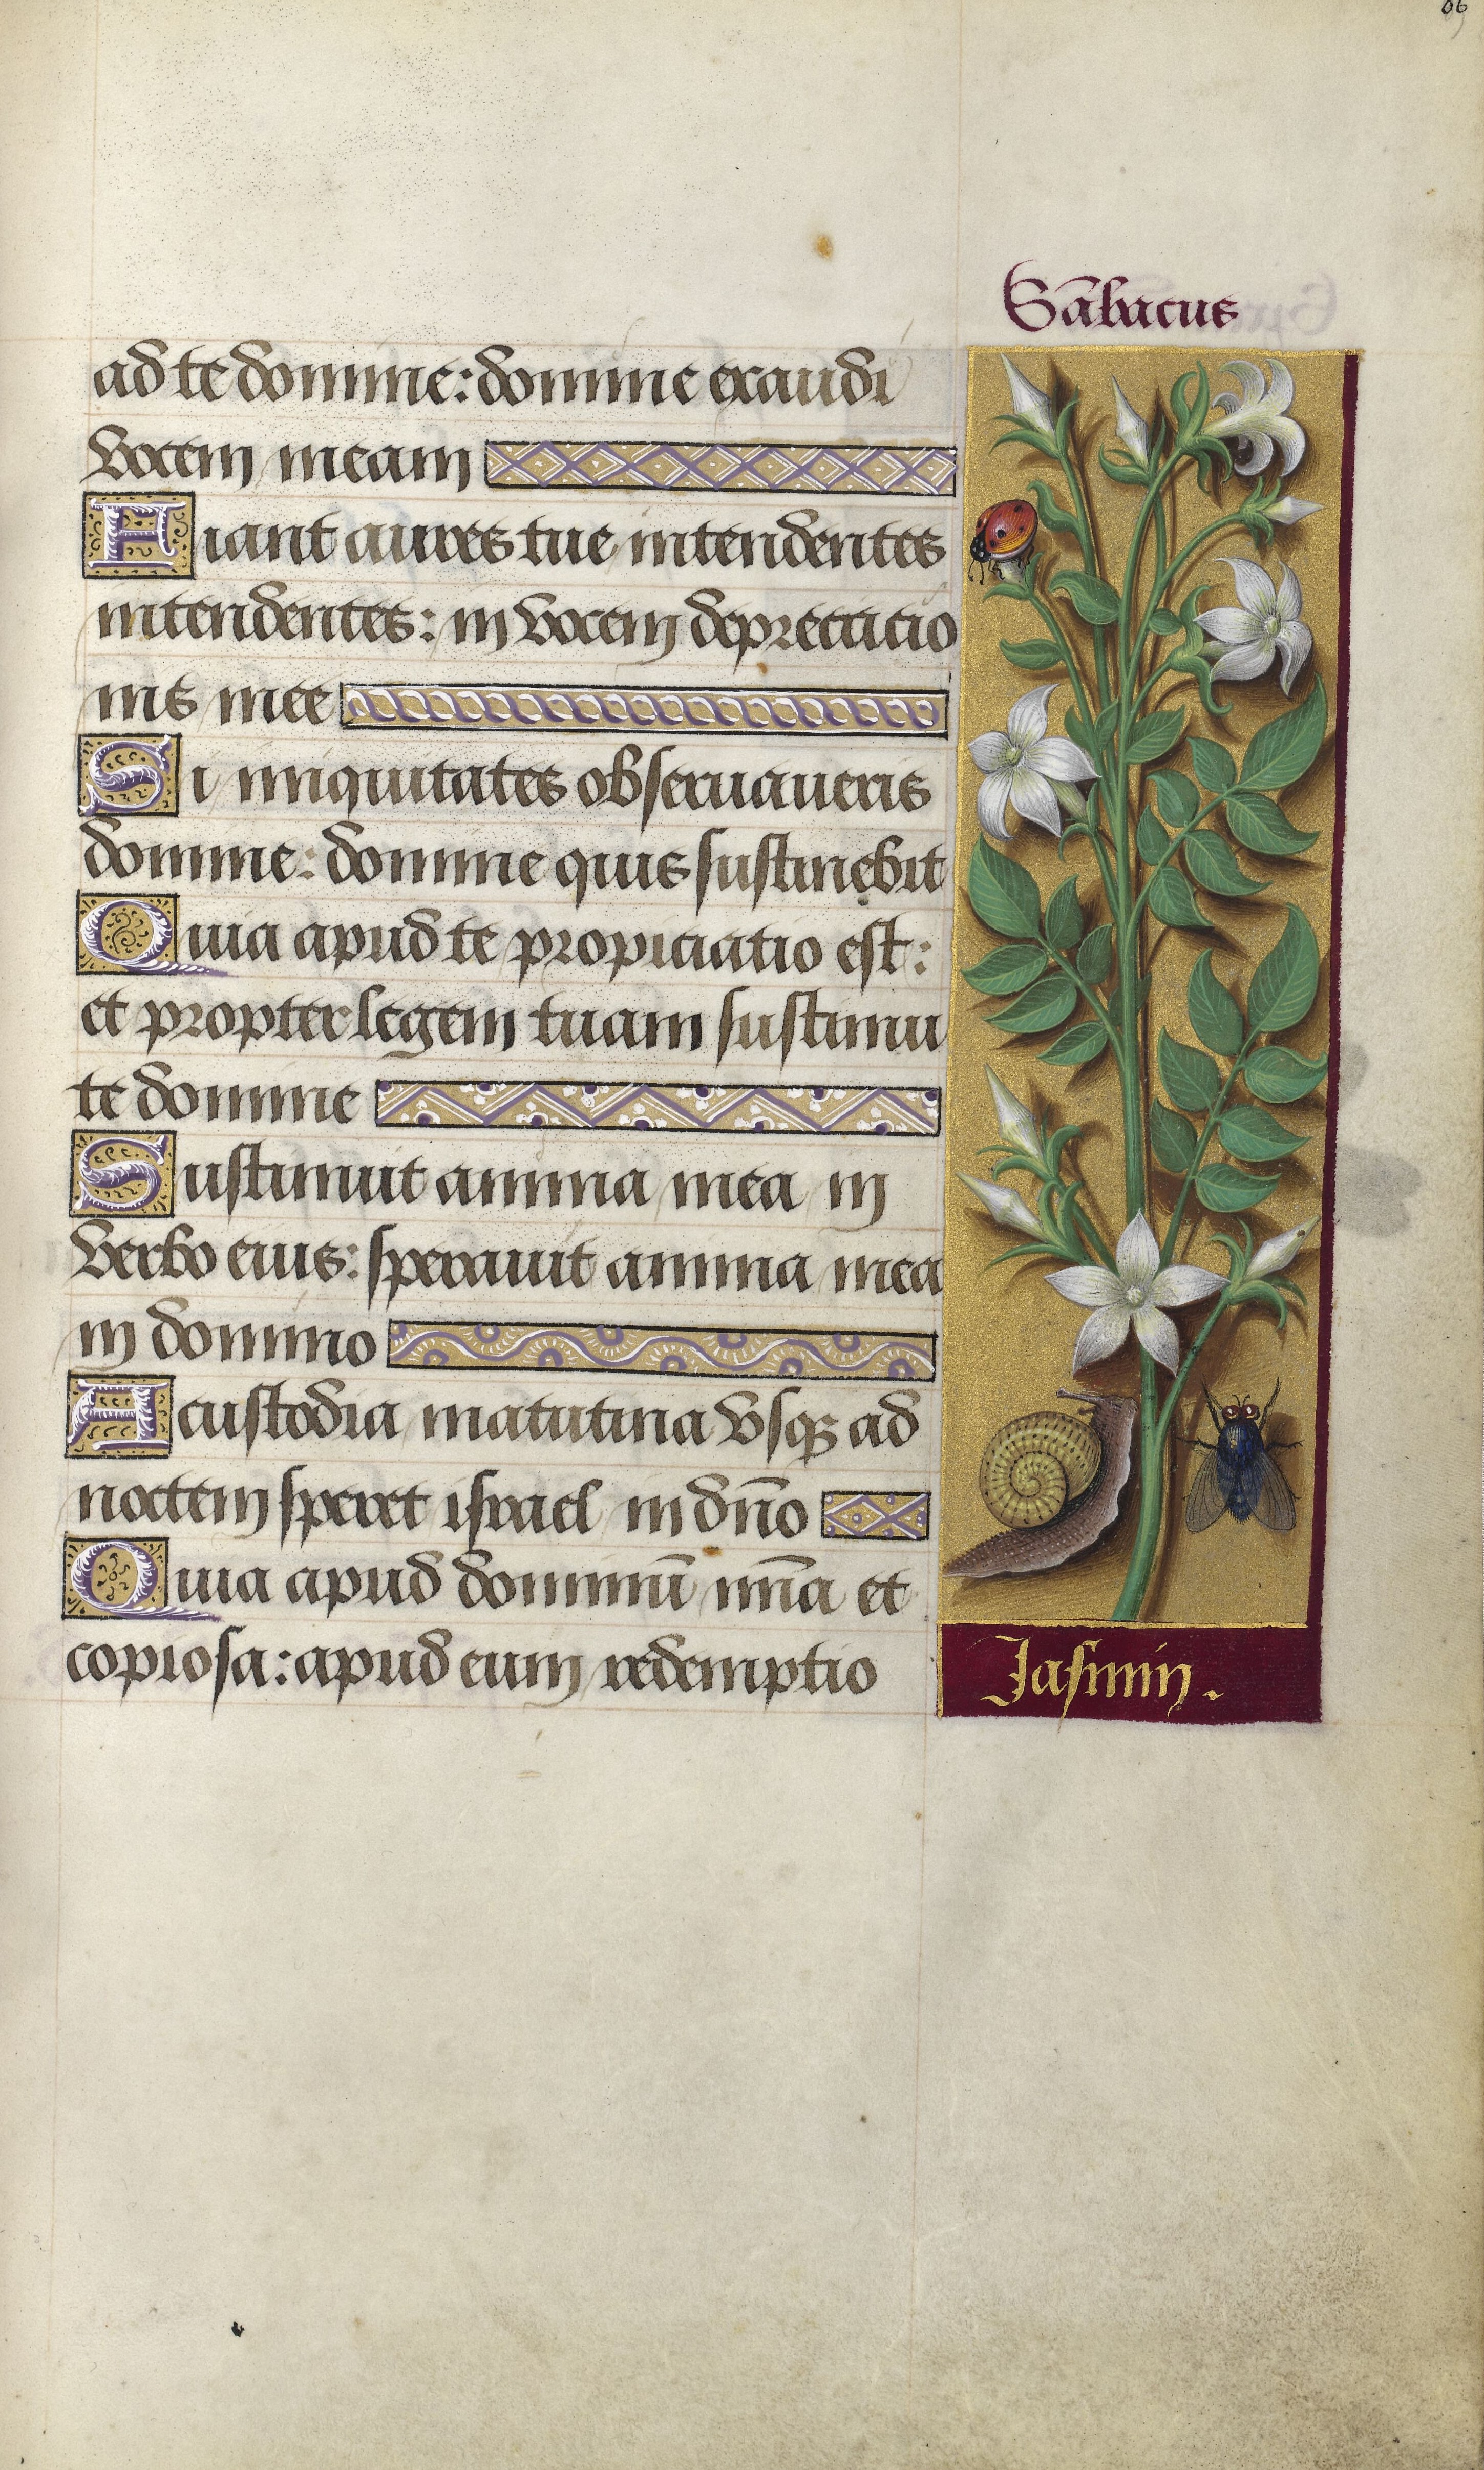 06
Sābacus
ad te domine: domine exaudi
vocem meam
Fiant aures tue intendentes
intendentes: in vocem deprecacio
nis mee
Si iniquitates observaveris
domine: domine quis sustinebit
Quia apud te propiciatio est:
et propter legem tuam sustinu
te domine
Sustinuit anima mea in
verbo eius: speravit anima mea
in domino
A custodia matutina usqꝫ ad
noctem speret israel in dn̄o
Quia apud dominū mīa et
copiosa: apud eum redemptio
Jasimin.